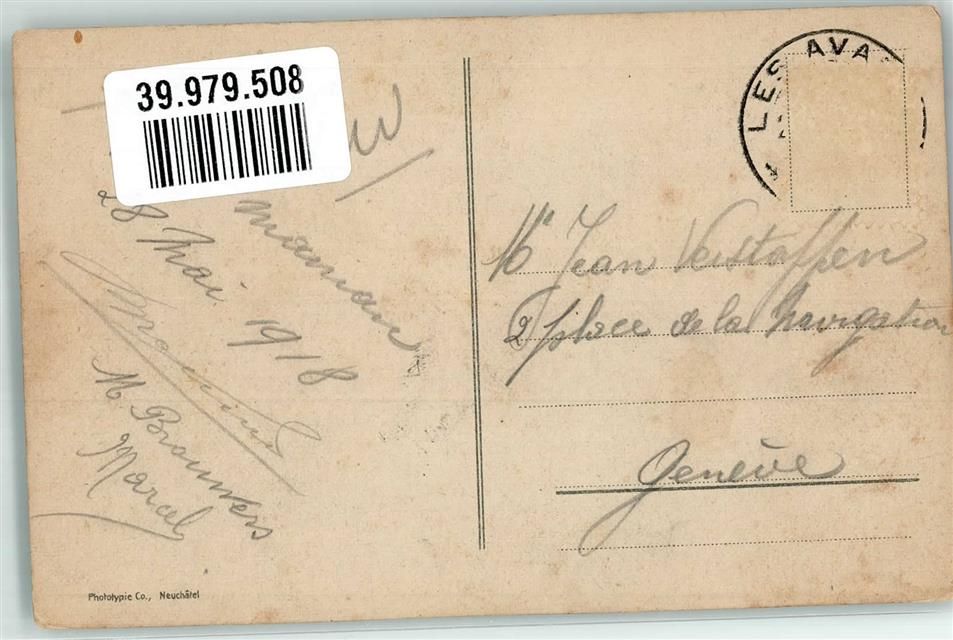 39.979.508
maman
28 Mai 1918
M. Brouwers
Marcel
Phototypie Co., Neuchâtel
LES AVA
Mr Jean Verstaffen
2 place de la Navigation
Genève